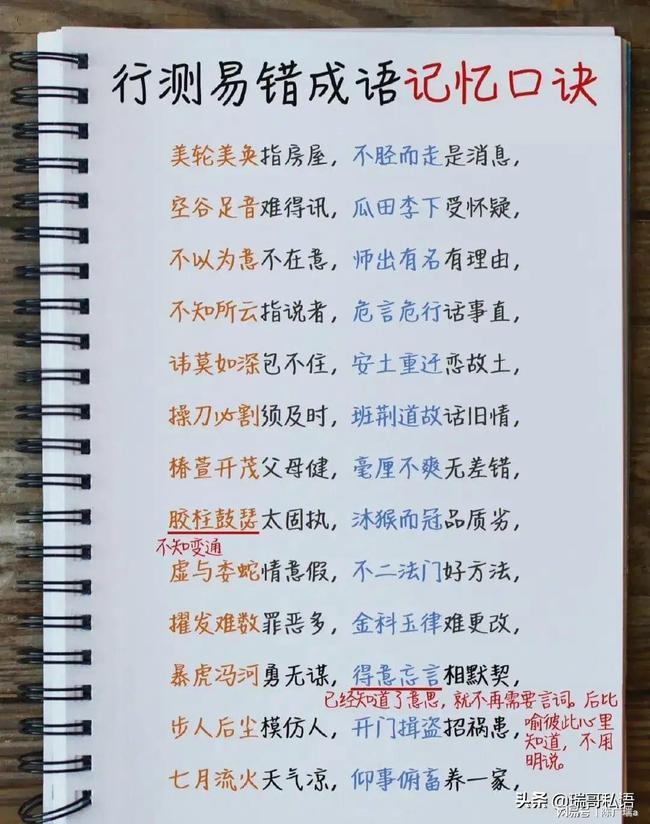 行测易错成语记忆口诀
美轮美奂指房屋，不胫而走是消息，
空谷足音难得讯，瓜田李下受怀疑，
不以为意不在意，师出有名有理由，
不知所云指说者，危言危行话事直，
讳莫如深包不住，安土重迁恋故土，
操刀必割须及时，班荆道故话旧情，
椿萱并茂父母健，毫厘不爽无差错，
胶柱鼓瑟太固执，沐猴而冠品质劣，
不知变通
虚与委蛇情意假，不二法门好方法，
擢发难数罪恶多，金科玉律难更改，
暴虎冯河勇无谋，得意忘言相默契，
已经知道了意思，就不再需要言词。后比
喻彼此心里
知道，不用
明说。
步人后尘模仿人，开门揖盗招祸患，
七月流火天气凉，仰事俯畜养一家，
头条 @瑞哥私语